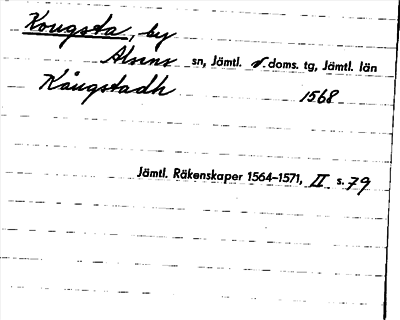 Kougsta, by
Alsens sn, Jämtl. v. doms. tg, Jämtl. län
Kåugstadh 1568
Jämtl. Räkenskaper 1564-1571, II s. 79